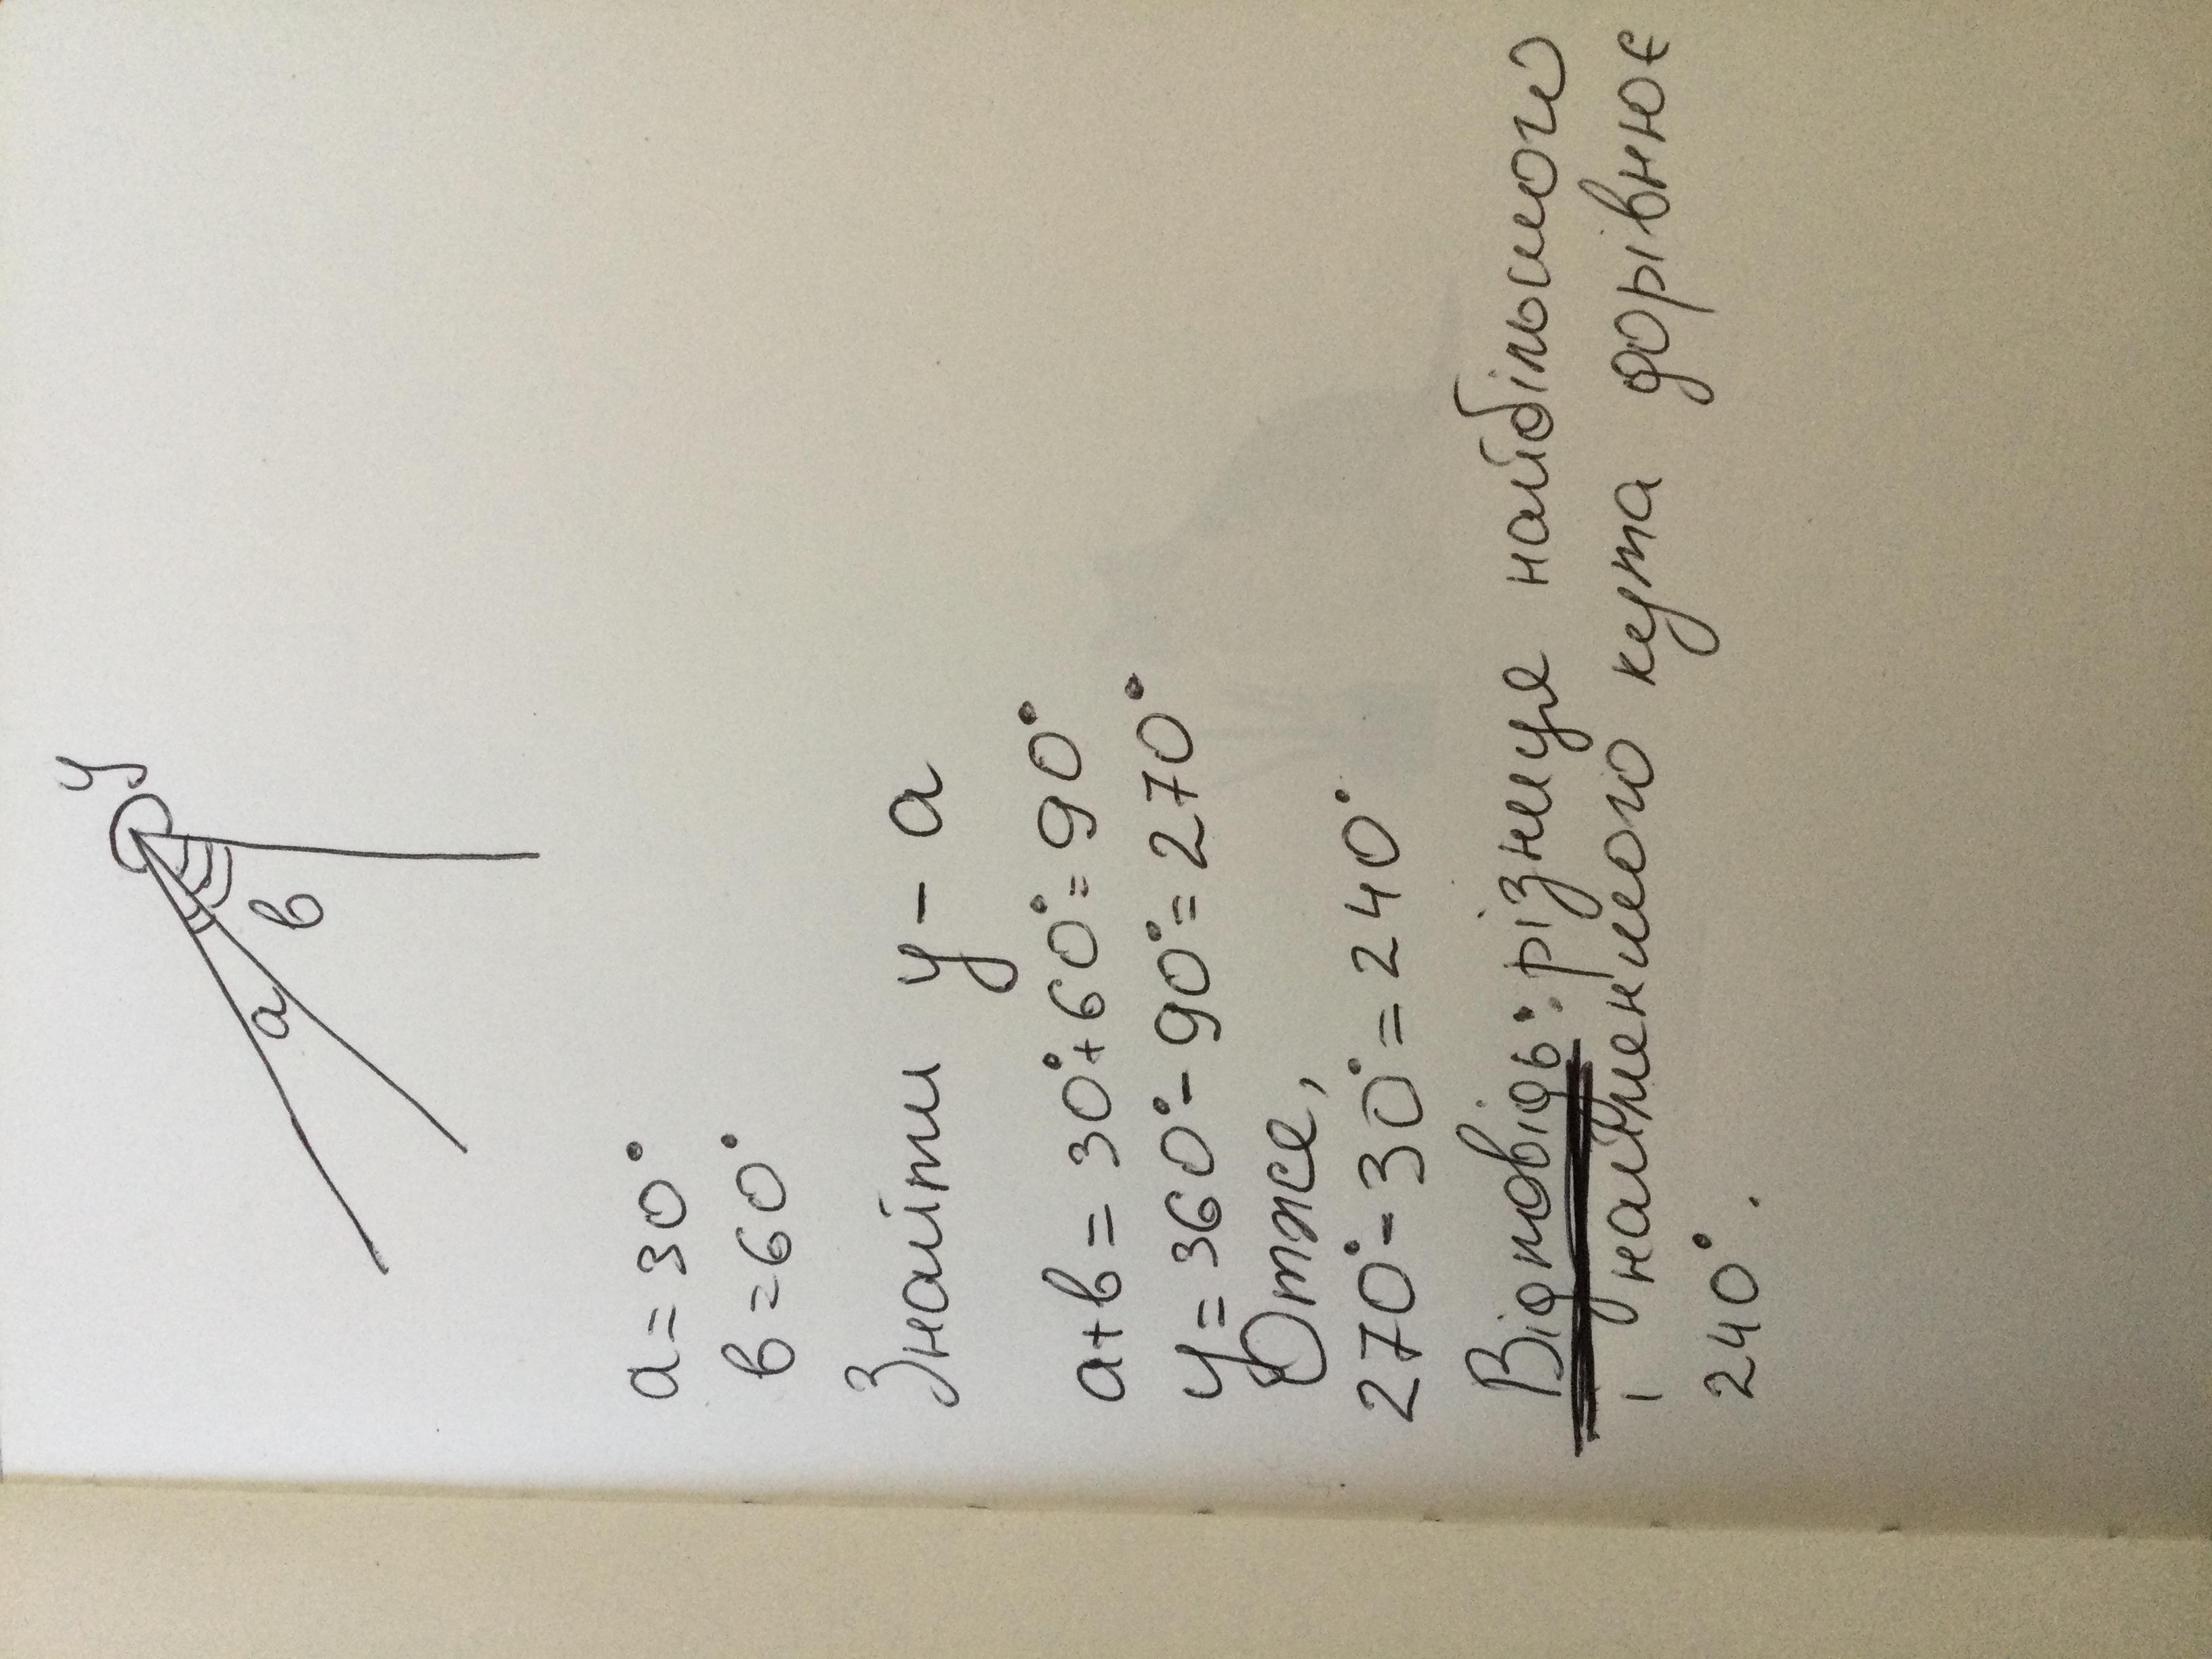 у
а
в
а = 30°
в = 60°
Знайти у - а
а+в = 30°+60°=90°
у= 360°-90°= 270°
Отже,
270°-30°= 240°
Відповідь: різниця найбільшого
і найменшого кута дорівнює
240°.